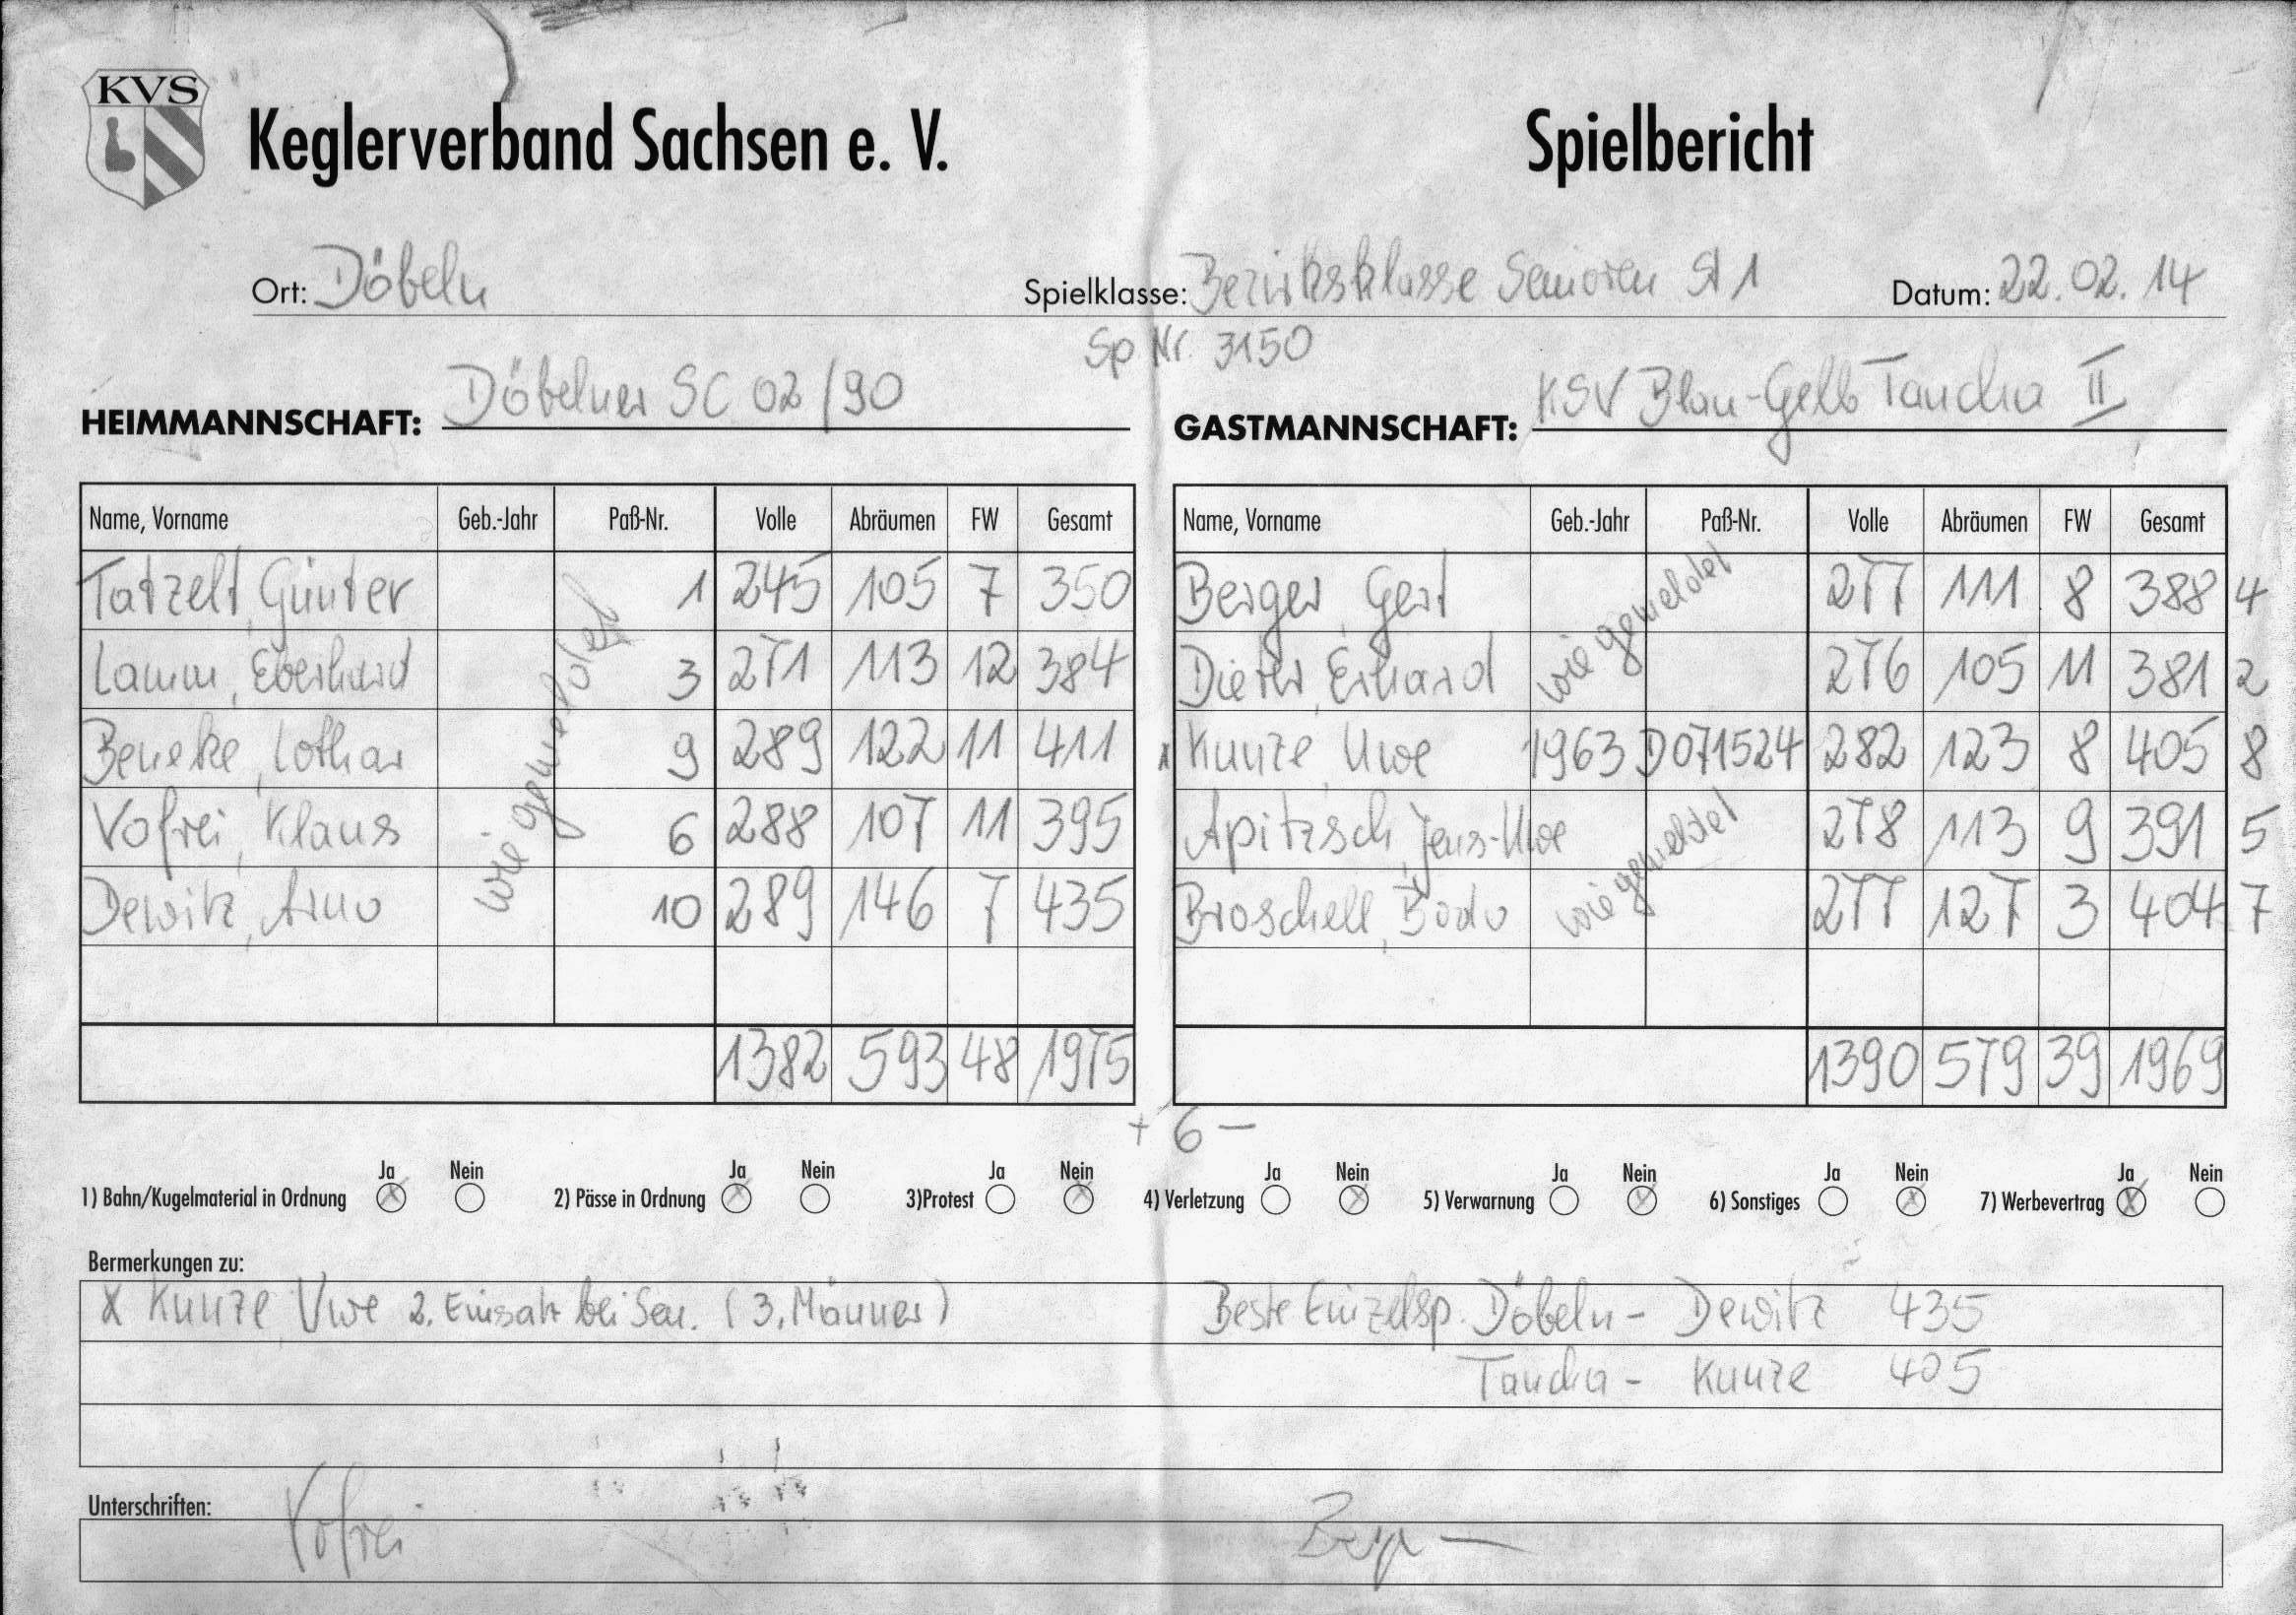 KVS
Keglerverband Sachsen e. V.
Spielbericht
Ort: Döbeln Spielklasse: Bezirksklasse Senioren St 1 Datum: 22.02.14
Sp Nr. 3150
HEIMMANNSCHAFT: Döbelner SC 02/90
GASTMANNSCHAFT: KSV Blau-Gelb Taucha II
Name, Vorname Geb.-Jahr Paß-Nr. Volle Abräumen FW Gesamt
Tatzelt, Günter 1 245 105 7 350
Lamm, Eberhard 3 271 113 12 384
Beneke, Lothar 9 289 122 11 411
Vofrei, Klaus 6 288 107 11 395
Dewitz, Arno 10 289 146 7 435
wie gemeldet
1382 593 48 1975
Name, Vorname Geb.-Jahr Paß-Nr. Volle Abräumen FW Gesamt
Berger, Gert 277 111 8 388 4
Dietler, Erhard 276 105 11 381 2
wie gemeldet
x Kunze, Uwe 1963 D071524 282 123 8 405 8
Apitzsch, Jens-Uwe 278 113 9 391 5
Broschell, Bodo 277 127 3 404 7
wie gemeldet
1390 579 39 1969
+ 6 -
1) Bahn/Kugelmaterial in Ordnung Ja X Nein 2) Pässe in Ordnung Ja X Nein 3)Protest Ja Nein X 4) Verletzung Ja Nein X 5) Verwarnung Ja Nein X 6) Sonstiges Ja Nein X 7) Werbevertrag Ja X Nein
Bermerkungen zu:
X Kunze Uwe 2. Einsatz bei Sen. (3. Männer) Beste Einzelsp. Döbeln - Dewitz 435
Taucha - Kunze 405
Unterschriften:
Vofrei